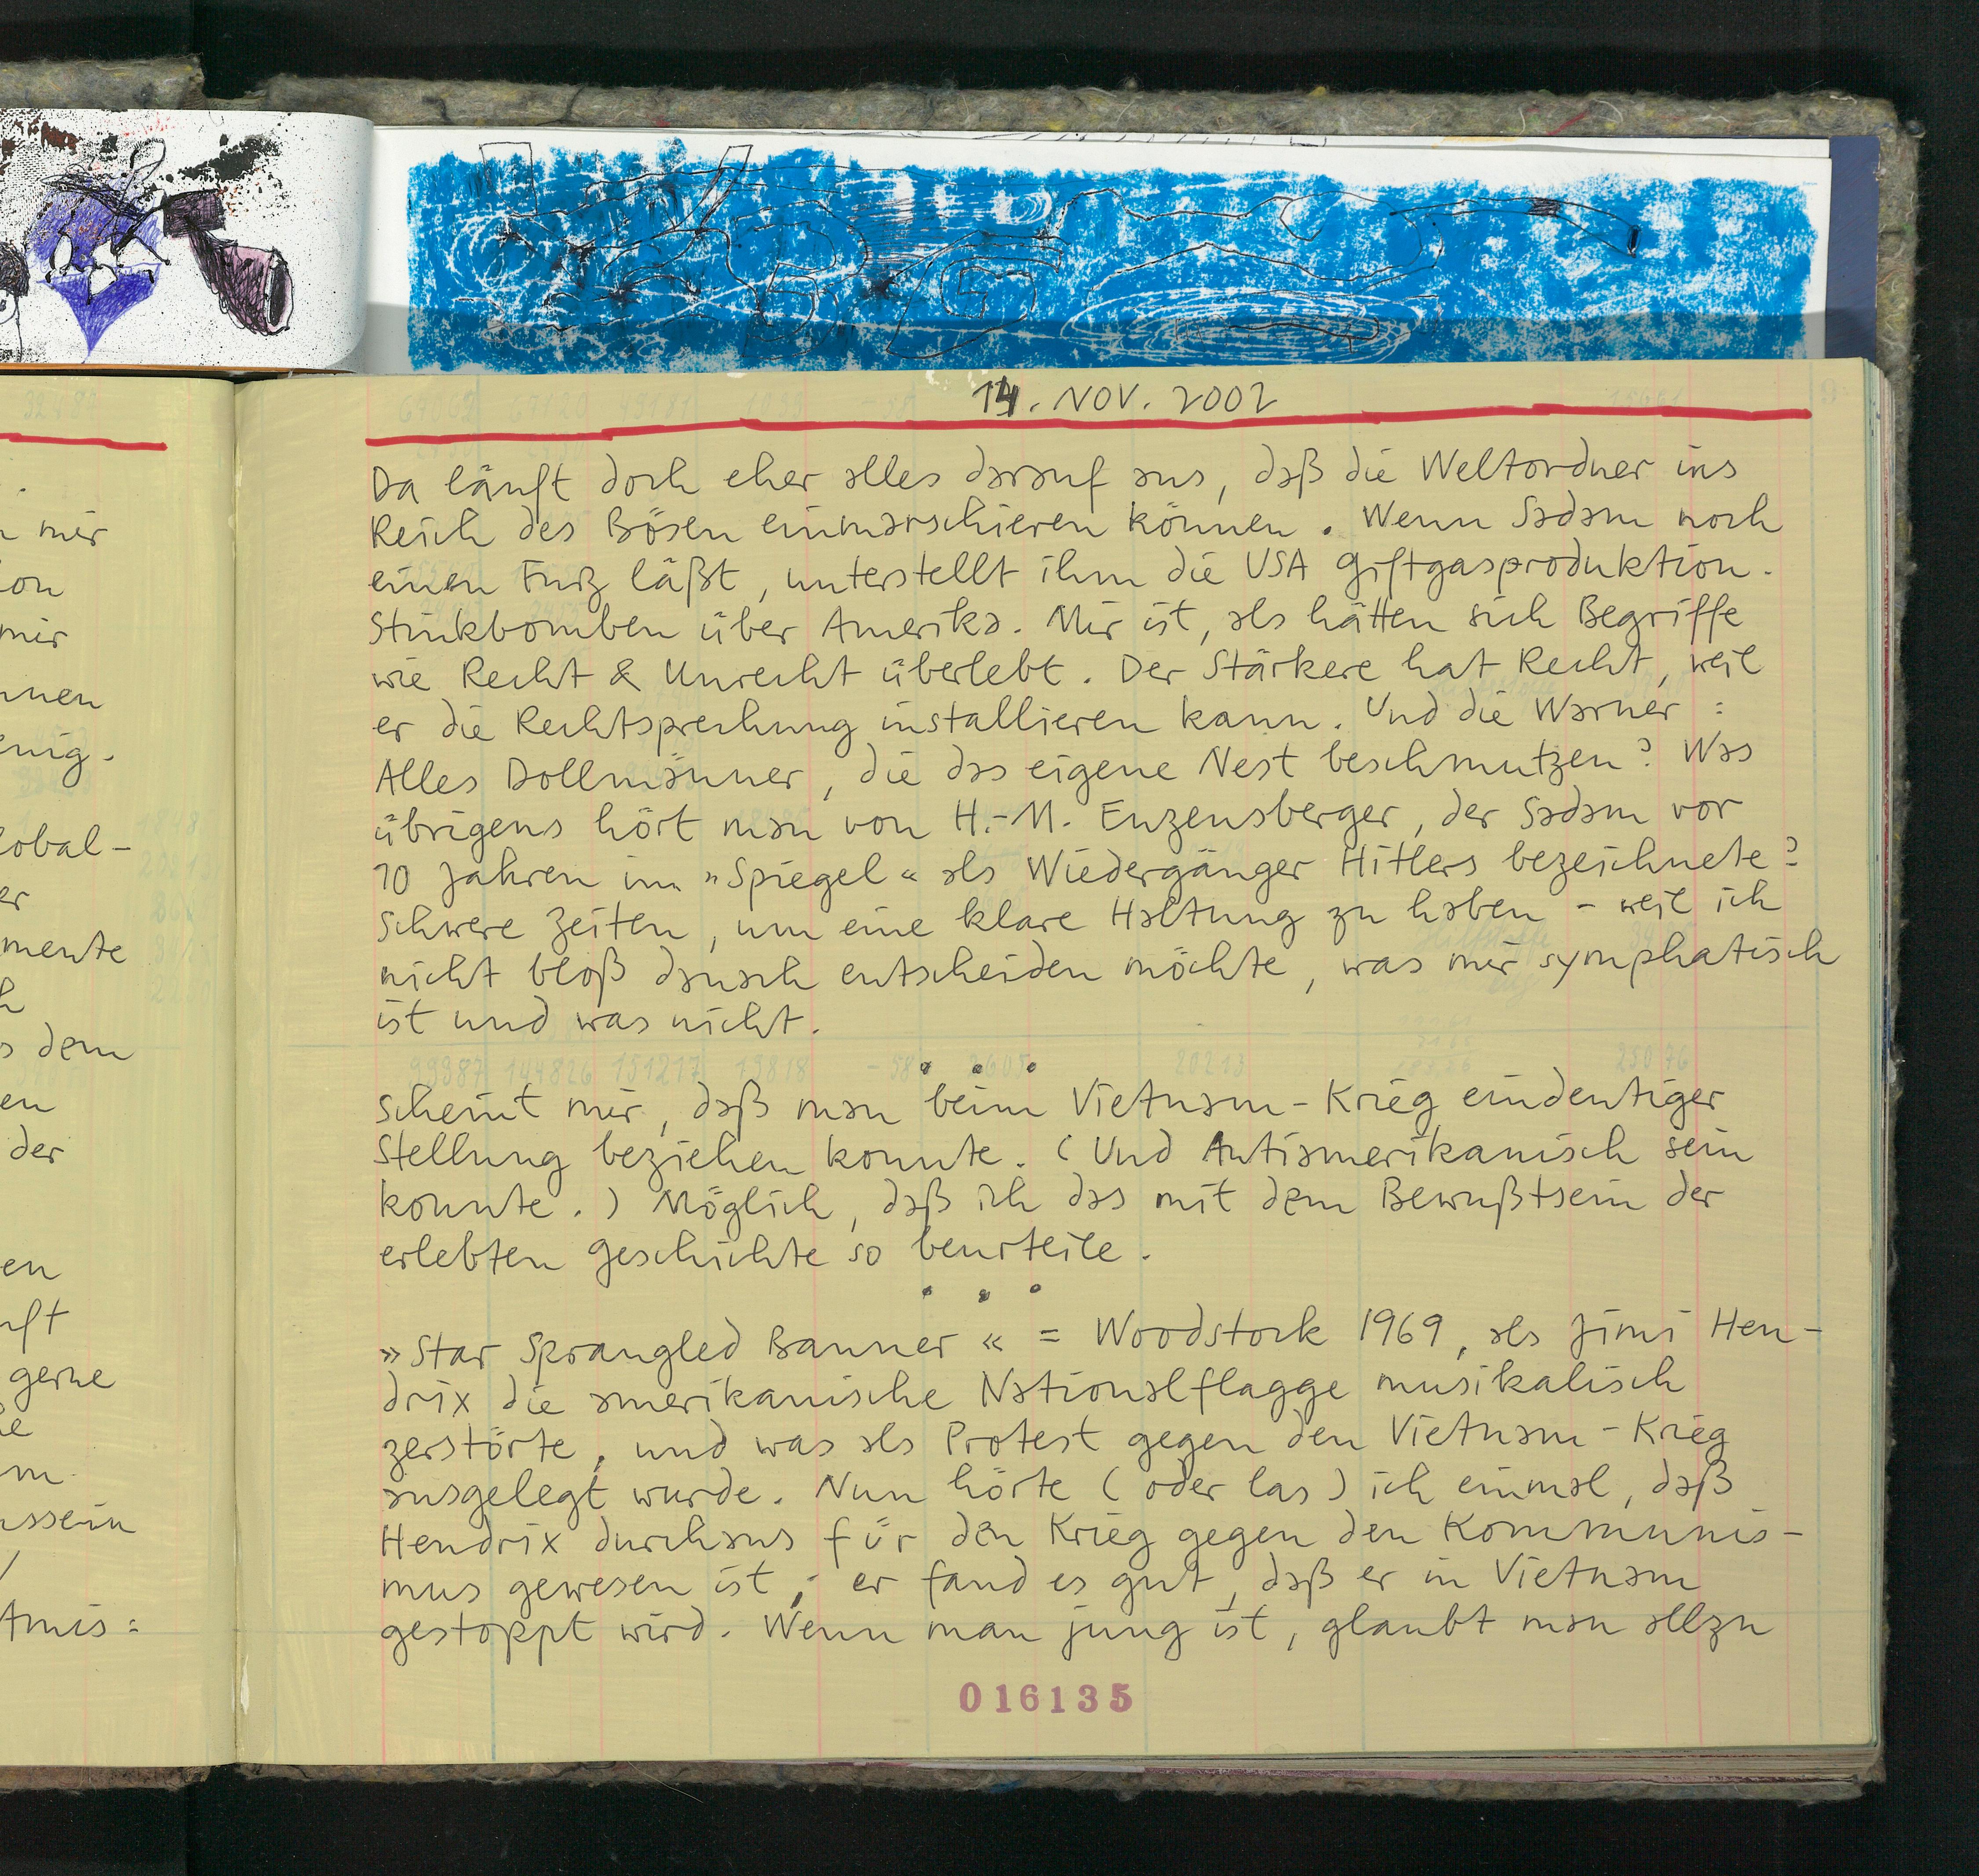 14. NOV. 2002
Da läuft doch eher alles darauf aus, daß die Weltordner ins
Reich des Bösen einmarschieren können. Wenn Sadam noch
einen Furz läßt, unterstellt ihm die USA Giftgasproduktion.
Stinkbomben über Amerika. Mir ist, als hätten sich Begriffe
wie Recht & Unrecht überlebt. Der Stärkere hat Recht, weil
er die Rechtsprechung installieren kann. Und die Warner:
Alles Dollmänner, die das eigene Nest beschmutzen? Was
übrigens hört man von H.-M. Enzensberger, der Sadam vor
10 Jahren im »Spiegel« als Wiedergänger Hitlers bezeichnete?
Schwere Zeiten, um eine klare Haltung zu haben - weil ich
nicht bloß danach entscheiden möchte, was mir symphatisch
ist und was nicht.
scheint mir, daß man beim Vietnam-Krieg eindeutiger
Stellung beziehen konnte. (Und Antiamerikanisch sein
konnte.) Möglich, daß ich das mit dem Bewußtsein der
erlebten Geschichte so beurteile.
»Star Sprangled Banner« = Woodstock 1969, als Jimi Hen-
drix die amerikanische Nationalflagge musikalisch
zerstörte, und was als Protest gegen den Vietnam-Krieg
ausgelegt wurde. Nun hörte (oder las) ich einmal, daß
Hendrix durchaus für den Krieg gegen den Kommunis-
mus gewesen ist; er fand es gut, daß er in Vietnam
gestoppt wird. Wenn man jung ist, glaubt man allzu
016135
mir
on
mir
nnen
enig.
lobal-
er
mente
h
s dem
en
der
en
uft
gerne
e
m.
ussein
Amis: